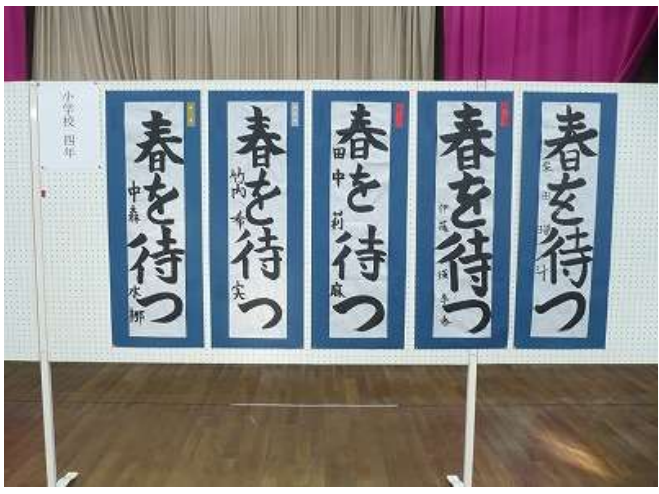 小学校 四年
春を待つ
中森 水梛
春を待つ
竹内 希実
春を待つ
田中 莉麻
春を待つ
春を待つ